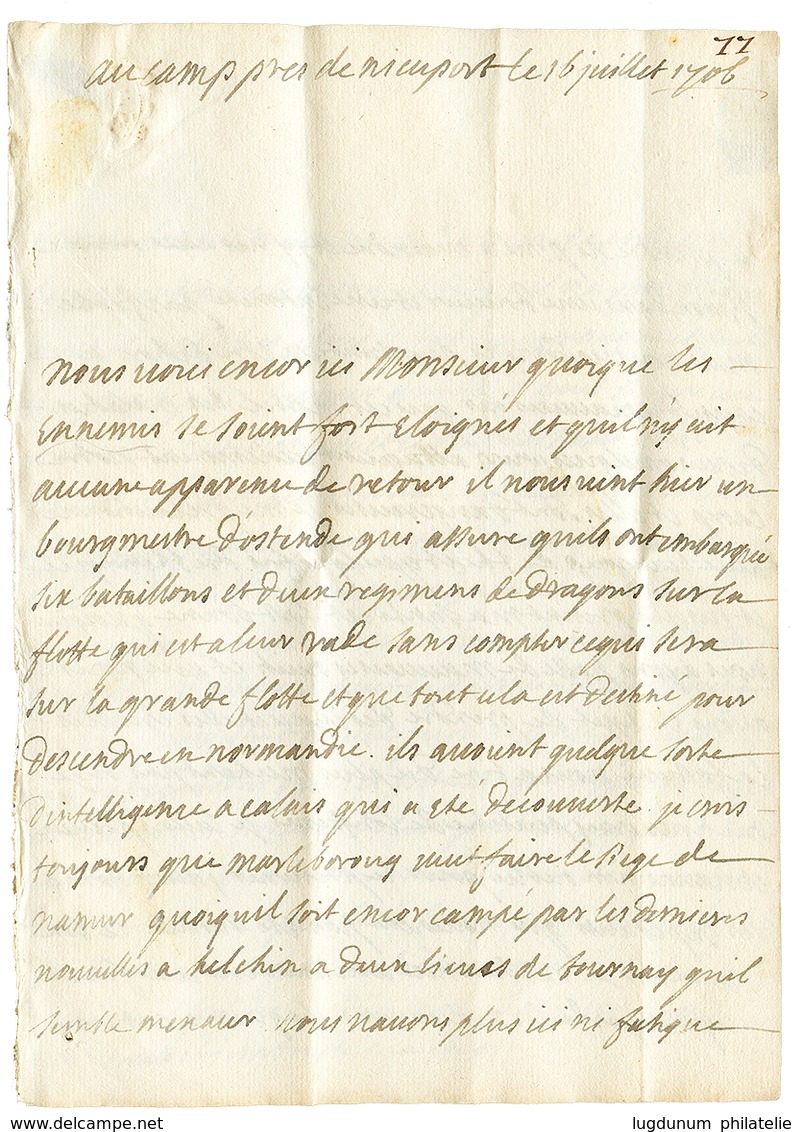 77
au camp pres de nieuport le 16 juillet 1706
nous voici encor ici Monsieur quoique les
Ennemis se soient fort Eloignes et quil n'y ait
aucune apparence de retour il nous vint hier un
bourgmestre d'ostende qui assure quils ont embarqué
six bataillons et deux regimens de dragons sur la
flotte qui est a leur rade sans compter ce qui sera
sur la grande flotte et que tout cela est destiné pour
descendre en normandie. ils avoient quelque sorte
d'intelligence a calais qui a eté decouverte. je crois
toujours que marleboroug veut faire le siege de
namur quoiquil soit encor campé par les dernieres
nouvelles a helchin a deux lieues de tournay qu'il
semble menacer. nous navons plus ici ni fatigue
www.delcampe.net
lugdunum philatelie